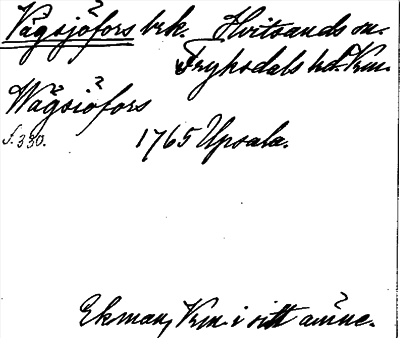 Vägsjöfors brk. Hvitsands sn.
Fryksdals hd. Vrm.
Wägsiöfors
s. 330. 1765 Upsala.
Ekman, Vrm. i sitt ämne.